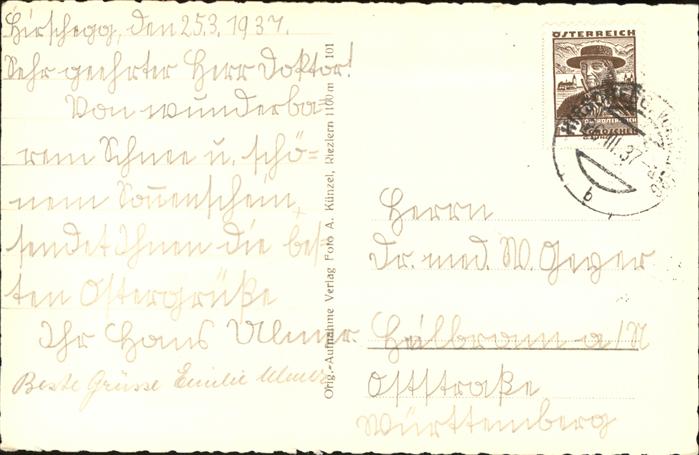 Hirschegg, den 25.3.1937.
Sehr geehrter Herr Doktor!
Von wunderba-
rem Schnee u. schö-
nem Sonnenschein,
sendet Ihnen die bes-
ten Ostergrüße
Ihr Hans Ulmer.
Beste Grüsse Emilie Ulmer
Orig.-Aufnahme Verlag Foto A. Künzel, Riezlern 1100 m 101
ÖSTERREICH
GROSCHEN
III. 37
b
Herrn
Dr. med. W. Geyer
Heilbronn a/N
Oststraße
Württemberg